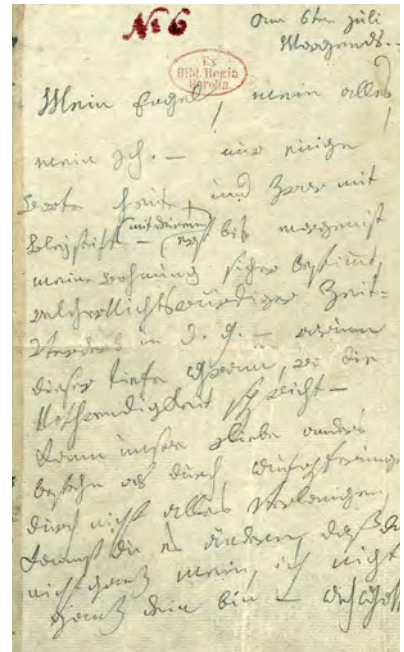 No 6
am 6ten Juli
Morgends. –
Ex
Bibl. Regia
Berolin.
Mein Engel, mein alles,
mein Ich. – nur einige
Worte heute, und zwar mit
Bleystift – (mit deinem) erst bis morgen ist
meine wohnung sicher bestimmt,
welcher Nichtswürdiger Zeit-
Verderb in d. g. – warum
dieser tiefe Gram, wo die
Nothwendigkeit spricht –
Kann unsre Liebe anders
bestehn als durch Aufopferungen,
durch nicht alles verlangen,
kannst du es ändern, daß du
nicht ganz mein, ich nicht
ganz dein bin – Ach Gott